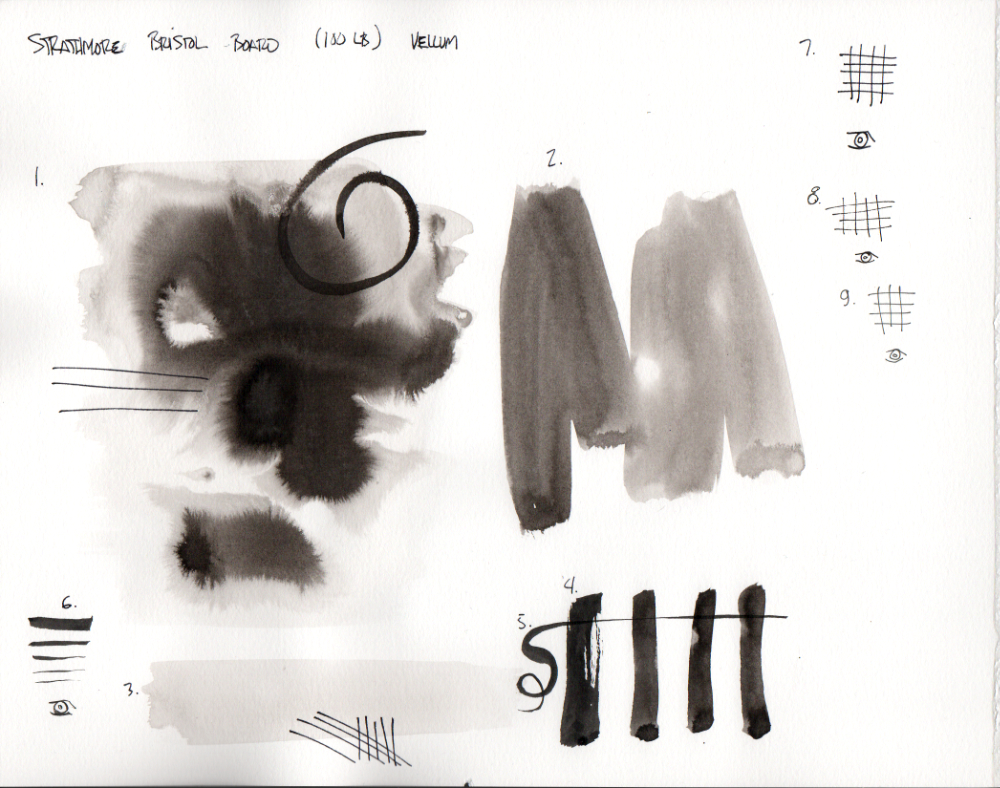 STRATHMORE BRISTOL BOARD (100 LB) VELLUM
7.
1.
2.
8.
9.
4.
6.
5.
3.